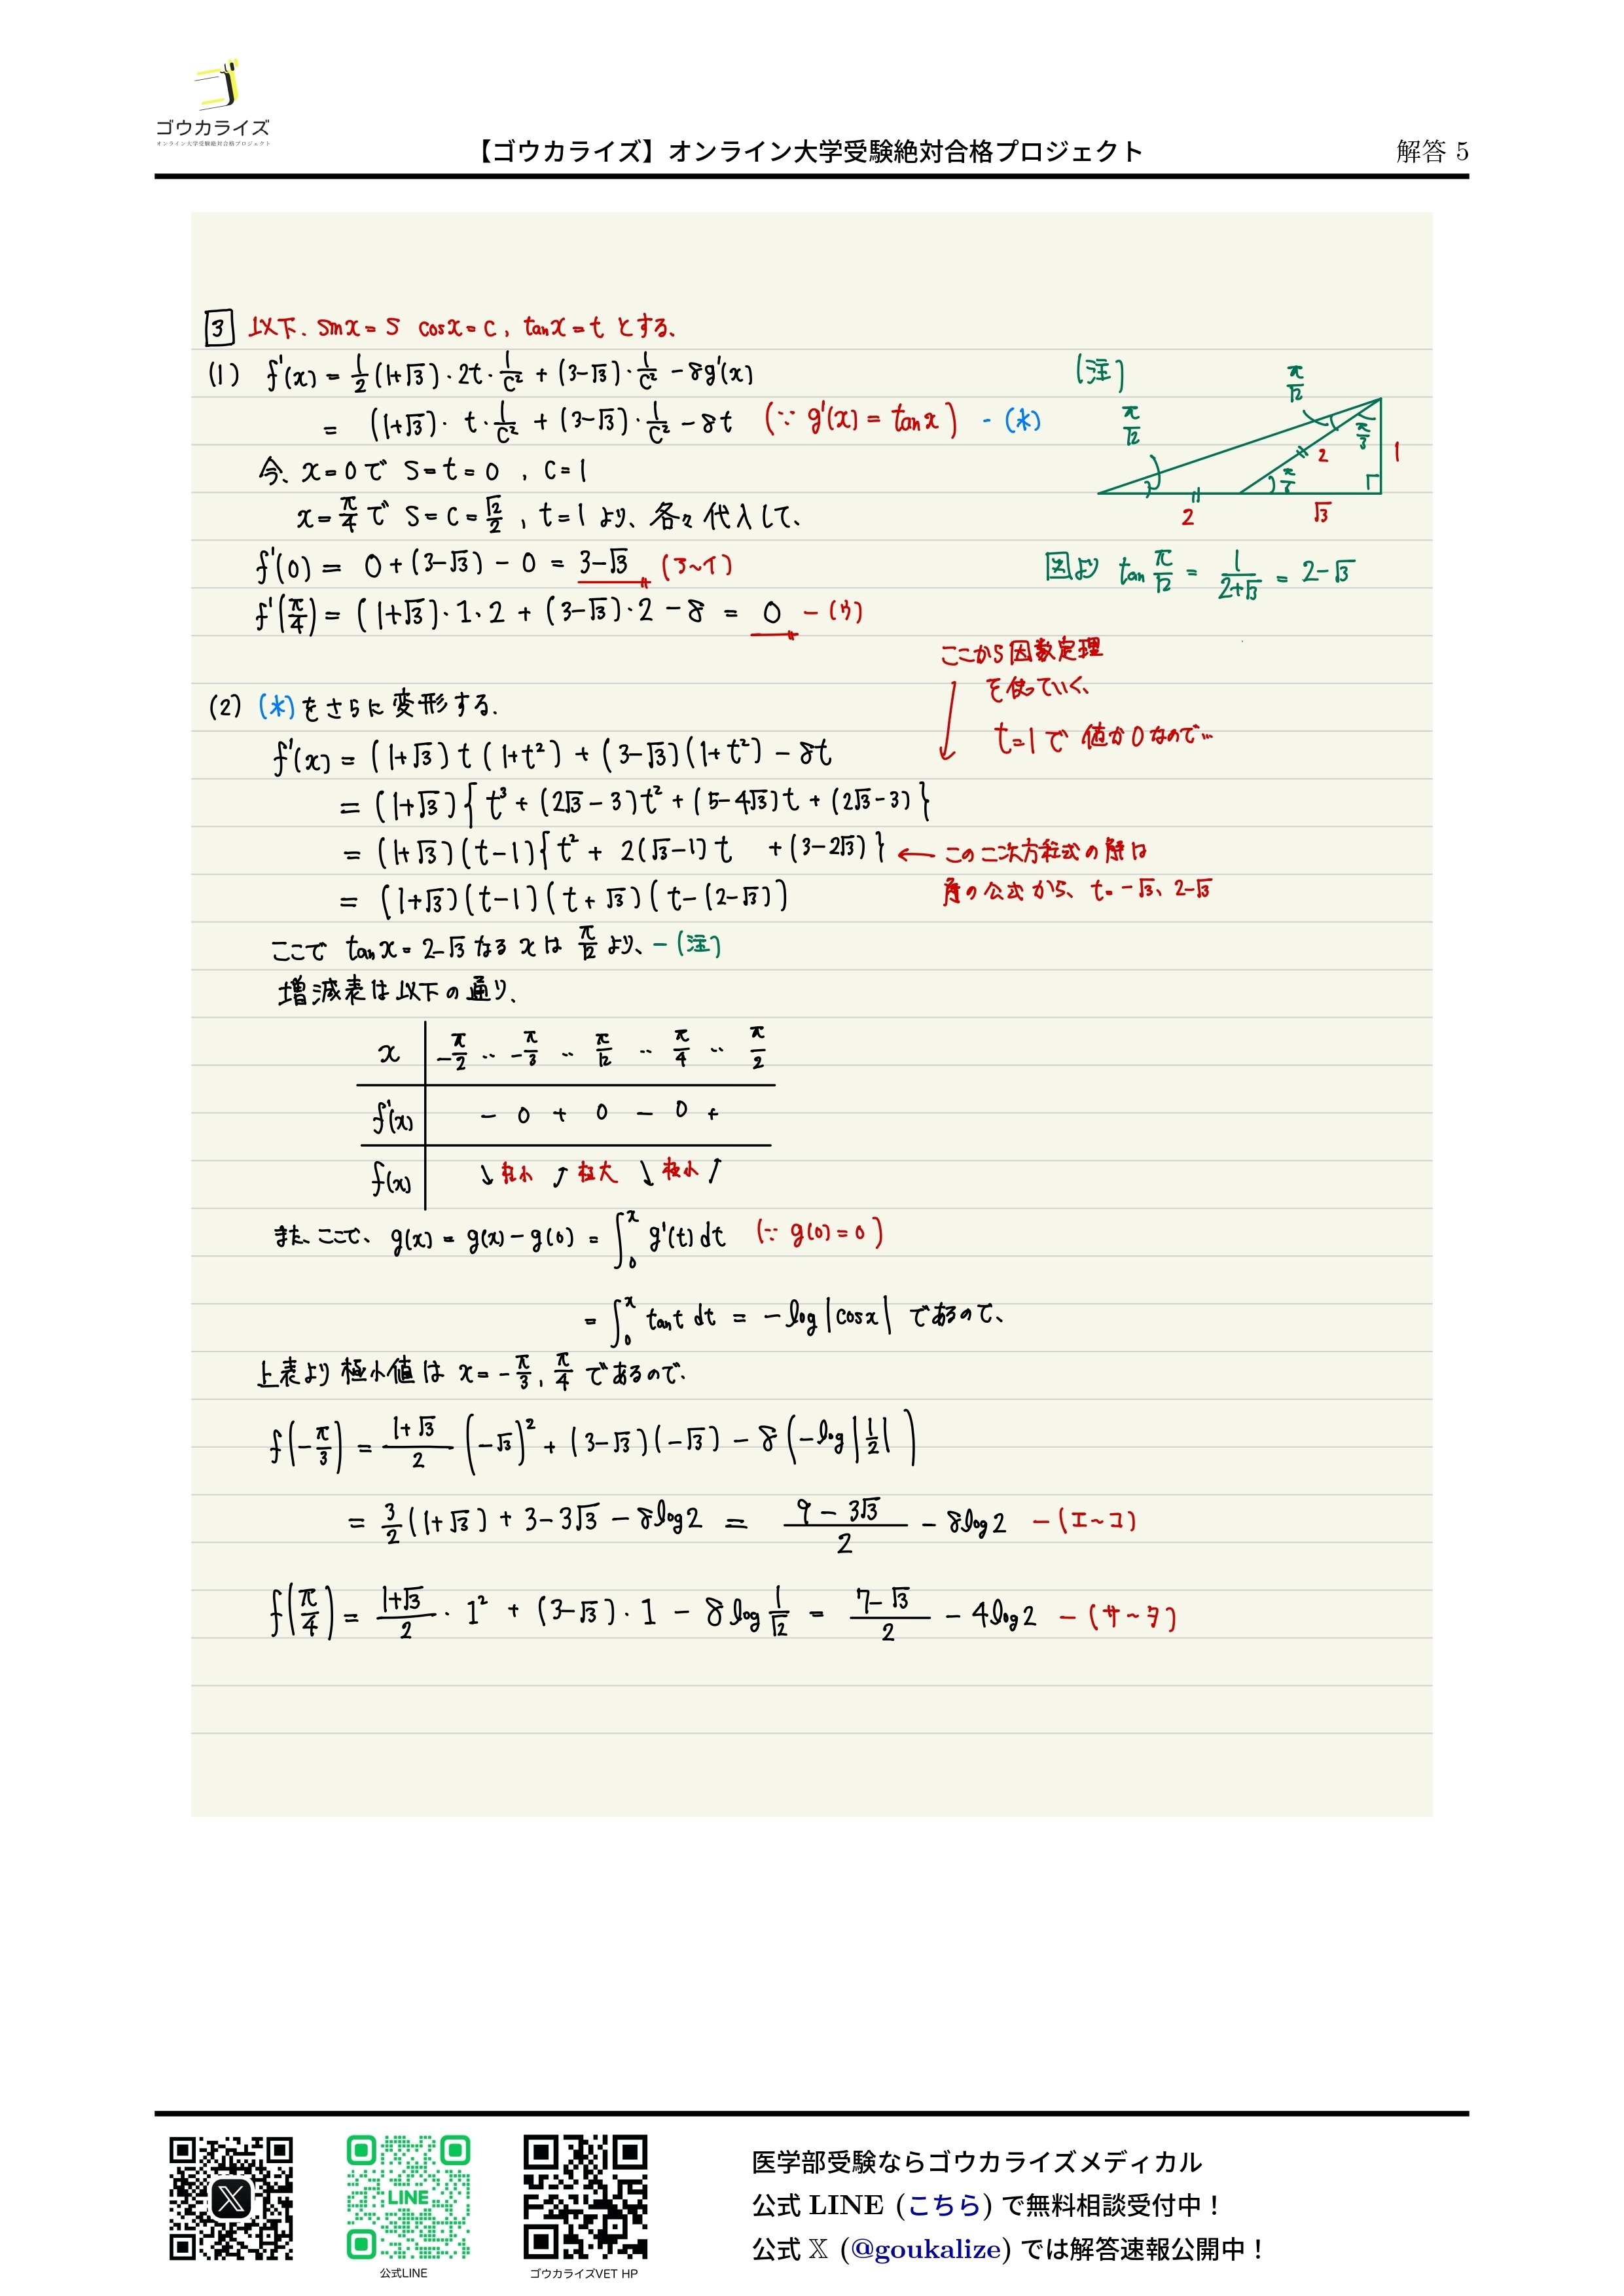 ゴウカライズ
オンライン大学受験絶対合格プロジェクト
【ゴウカライズ】オンライン大学受験絶対合格プロジェクト
解答 5
3 以下、sinx = s cosx = c, tanx = t とする。
(1) f'(x) = 1/2 (1+√3)・2t・1/c² + (3-√3)・1/c² - 8g'(x)
= (1+√3)・t・1/c² + (3-√3)・1/c² - 8t (∵ g'(x) = tanx) - (*)
今、x=0で s=t=0, c=1
x=π/4で s=c=√2/2, t=1より、各々代入して、
f'(0) = 0+(3-√3) - 0 = 3-√3 (ア~イ)
f'(π/4) = (1+√3)・1・2 + (3-√3)・2 - 8 = 0 - (ウ)
(注)
π/12
π/12
π/3
2
1
π/6
2
√3
図より tan π/12 = 1/(2+√3) = 2-√3
(2) (*)をさらに変形する。
ここから因数定理
を使っていく、
t=1で 値が0なので…
f'(x) = (1+√3) t (1+t²) + (3-√3)(1+t²) - 8t
= (1+√3){t³ + (2√3-3)t² + (5-4√3)t + (2√3-3)}
= (1+√3)(t-1){t² + 2(√3-1)t + (3-2√3)} ← この二次方程式の解は
解の公式から、t=-√3、2-√3
= (1+√3)(t-1)(t+√3)(t-(2-√3))
ここで tanx = 2-√3 なる x は π/12 より、- (注)
増減表は以下の通り、
x -π/2 ‥ -π/3 ‥ π/12 ‥ π/4 ‥ π/2
f'(x) - 0 + 0 - 0 +
f(x) ↘ 極小 ↗ 極大 ↘ 極小 ↗
また、ここで、g(x) = g(x) - g(0) = ∫₀ˣ g'(t) dt (∵ g(0) = 0)
= ∫₀ˣ tant dt = -log|cosx| であるので、
上表より極小値は x = -π/3, π/4 であるので、
f(-π/3) = (1+√3)/2 (-√3)² + (3-√3)(-√3) - 8(-log|1/2|)
= 3/2 (1+√3) + 3-3√3 - 8log2 = (9-3√3)/2 - 8log2 - (エ~コ)
f(π/4) = (1+√3)/2・1² + (3-√3)・1 - 8 log 1/√2 = (7-√3)/2 - 4log2 - (サ~タ)
LINE
公式LINE
ゴウカライズVET HP
医学部受験ならゴウカライズメディカル
公式 LINE (こちら) で無料相談受付中！
公式 𝕏 (@goukalize) では解答速報公開中！